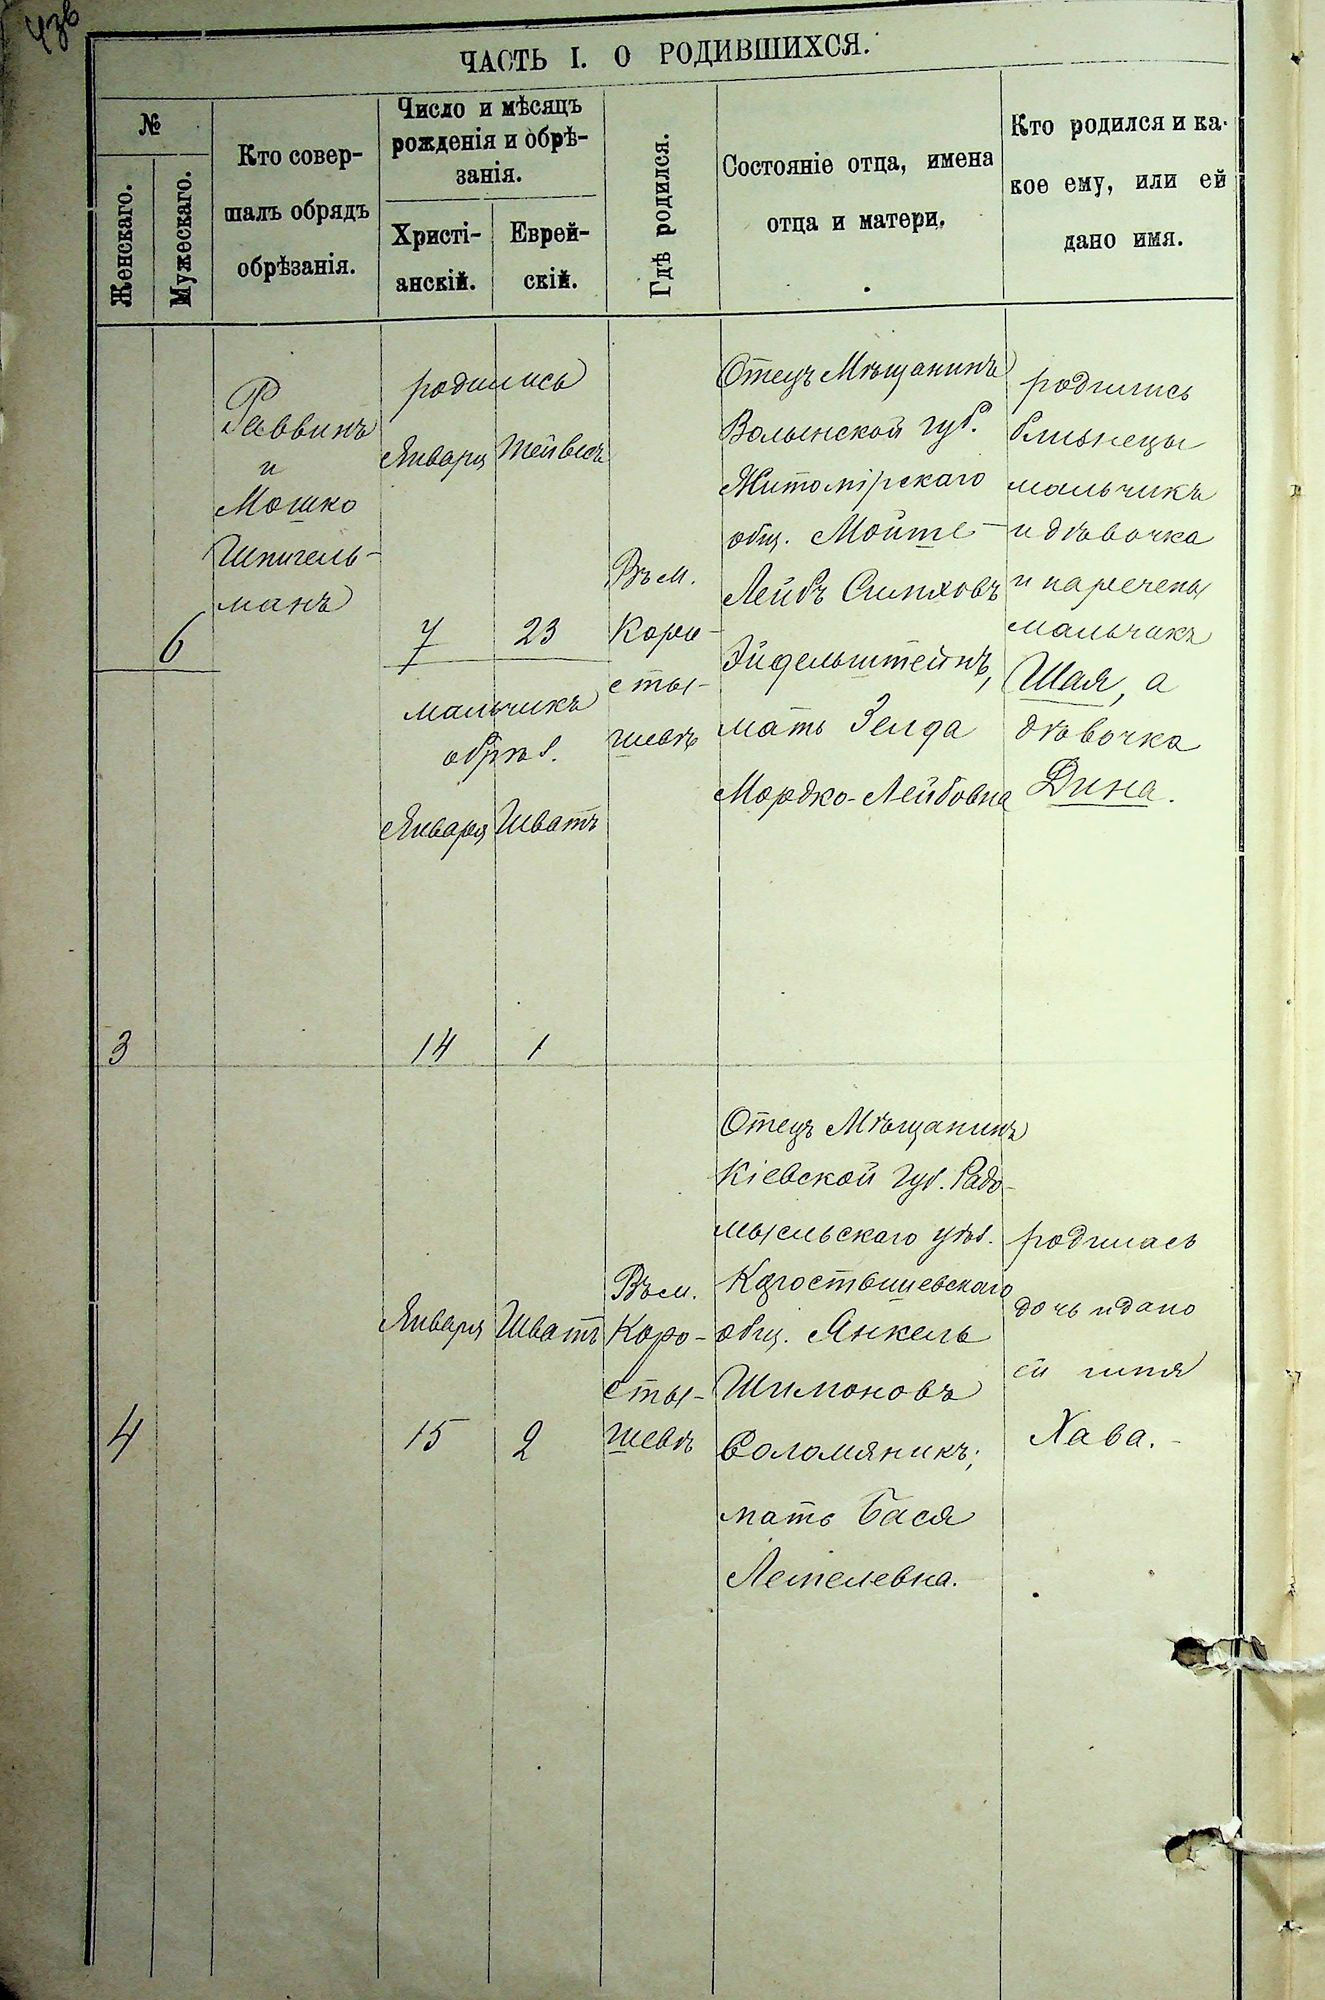 ЧАСТЬ I. О РОДИВШИХСЯ.
№
Женскаго.
Мужескаго.
Кто совер-
шалъ обрядъ
обрѣзанія.
Число и мѣсяцъ
рожденія и обрѣ-
занія.
Христі-
анскій.
Еврей-
скій.
Гдѣ родился.
Состояніе отца, имена
отца и матери.
Кто родился и ка-
кое ему, или ей
дано имя.
6
3
Раввинъ
и
Мошко
Шпигель-
манъ
родились
Января Тейвесъ
7 23
мальчикъ
обрѣз.
Января Шватъ
14 1
Въ м.
Коро-
сты-
шевѣ
Отецъ Мѣщанинъ
Волынской губ.
Житомірскаго
общ. Мойше-
Лейбъ Сиπховъ
Эйдельштейнъ,
мать Зелда
Мордко-Лейбовна
родились
близнецы
мальчикъ
и дѣвочка
и наречены
мальчикъ
Шая, а
дѣвочка
Дина.
4
Января Шватъ
15 2
Въ м.
Коро-
сты-
шевѣ
Отецъ Мѣщанинъ
Кіевской Губ. Радо-
мысльскаго уѣз.
Коростышевскаго
общ. Янкель
Шимоновъ
Соломяникъ;
мать Бася
родилась
дочь и дано
ей имя
Хава.-